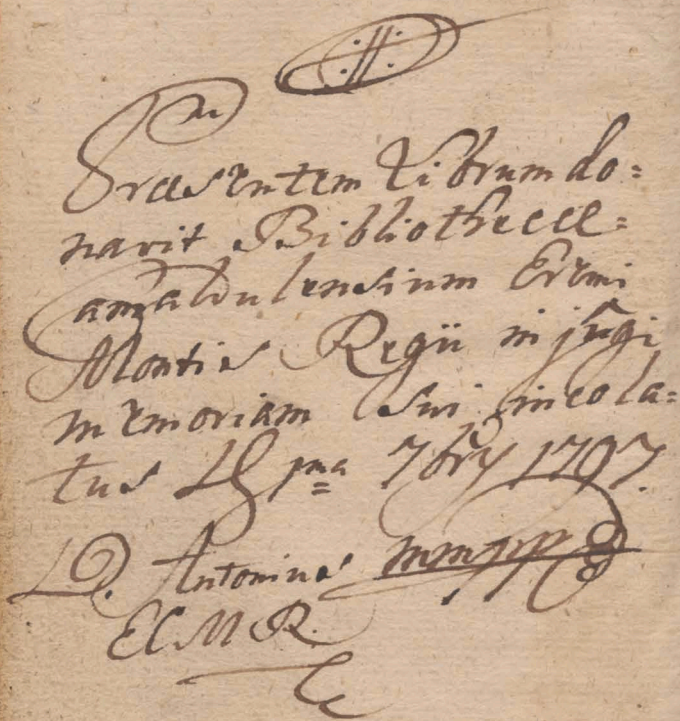 Præsentem Librum do=
navit Bibliothecæ
Camaldulensium Eremi
Montis Regii in jugi
memoriam sui incola=
tus pma 7bry 1797.
D. Antonius mmpp
ECMR.